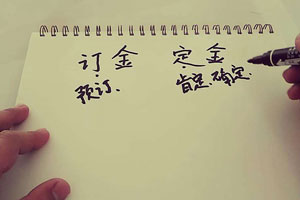 订金 定金
预订. 肯定、确定.